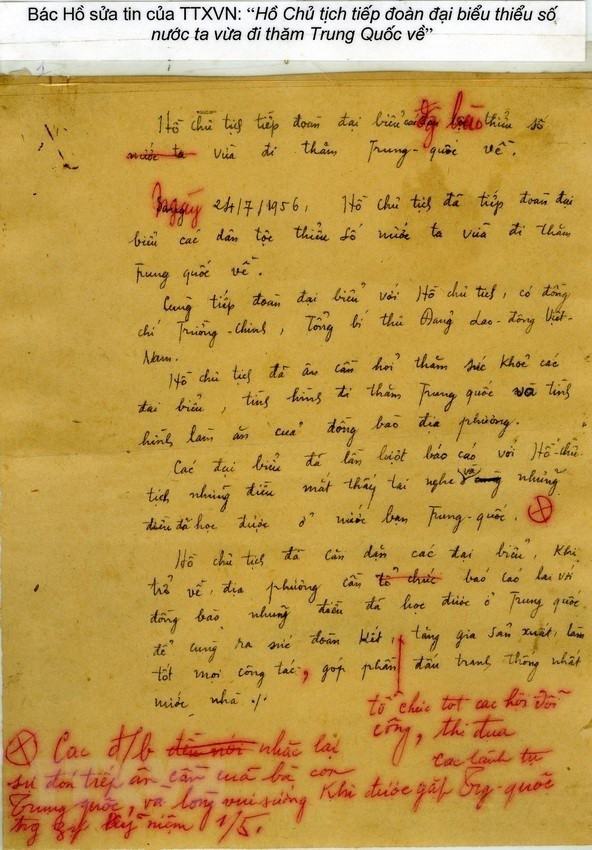 Bác Hồ sửa tin của TTXVN: “Hồ Chủ tịch tiếp đoàn đại biểu thiểu số
nước ta vừa đi thăm Trung Quốc về”
Hồ chủ tịch tiếp đoàn đại biểu đg bào thiểu số
nước ta vừa đi thăm Trung-quốc về.
Ngày 24/7/1956, Hồ chủ tịch đã tiếp đoàn đại
biểu các dân tộc thiểu số nước ta vừa đi thăm
Trung quốc về.
Cùng tiếp đoàn đại biểu với Hồ chủ tịch, có đồng
chí Trường-Chinh, Tổng bí thư Đảng Lao-động Việt-
Nam.
Hồ chủ tịch đã ân cần hỏi thăm sức khoẻ các
đại biểu, tình hình đi thăm Trung quốc và tình
hình làm ăn của đồng bào địa phương.
Các đại biểu đã lần lượt báo cáo với Hồ-chủ-
tịch những điều mắt thấy tai nghe và những
điều đã học được ở nước bạn Trung-quốc. ⊗
Hồ chủ tịch đã căn dặn các đại biểu, khi
trở về, địa phương cần tổ chức báo cáo lại với
đồng bào những điều đã học được ở Trung quốc
để cùng ra sức đoàn kết, tăng gia sản xuất, làm
tốt mọi công tác, góp phần đấu tranh thống nhất
nước nhà ./.
tổ chức tốt các hội đổi
công, thi đua
⊗ Các đ/b đều nói nhắc lại
sự đón tiếp ân cần của bà con
Trung quốc, và lòng vui sướng khi được gặp các lãnh tụ Trg-quốc
trg dịp kỷ niệm 1/5.